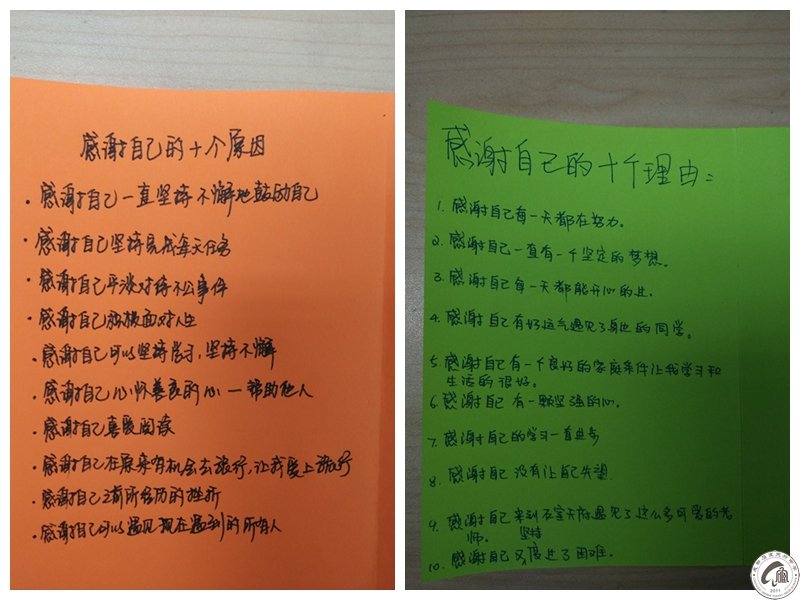 感谢自己的十个原因
· 感谢自己一直坚持不懈地鼓励自己
· 感谢自己坚持完成每天任务
· 感谢自己平淡对待不公事件
· 感谢自己积极面对人生
· 感谢自己可以坚持学习,坚持不懈
· 感谢自己心怀善良的心一帮助他人
· 感谢自己喜爱阅读
· 感谢自己在原来有机会去旅行,让我爱上旅行
· 感谢自己之前所经历的挫折
· 感谢自己可以遇见现在遇到的所有人
感谢自己的十个理由:
1. 感谢自己每一天都在努力。
2. 感谢自己一直有一个坚定的梦想。
3. 感谢自己每一天都能开心的过.
4. 感谢自己有好运气遇见了身边的同学。
5. 感谢自己有一个良好的家庭条件让我学习和
生活的很好。
6. 感谢自己有一颗坚强的心.
7. 感谢自己的学习一直进步
8. 感谢自己没有让自己失望.
9. 感谢自己来到 遇见了这么多可爱的老
师.
坚持
10. 感谢自己 过了困难.
2011